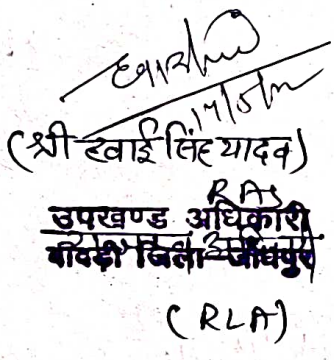 (श्री हवाई सिंह यादव)
RAS
उपखण्ड अधिकारी
बावड़ी जिला जोधपुर
(RLA)